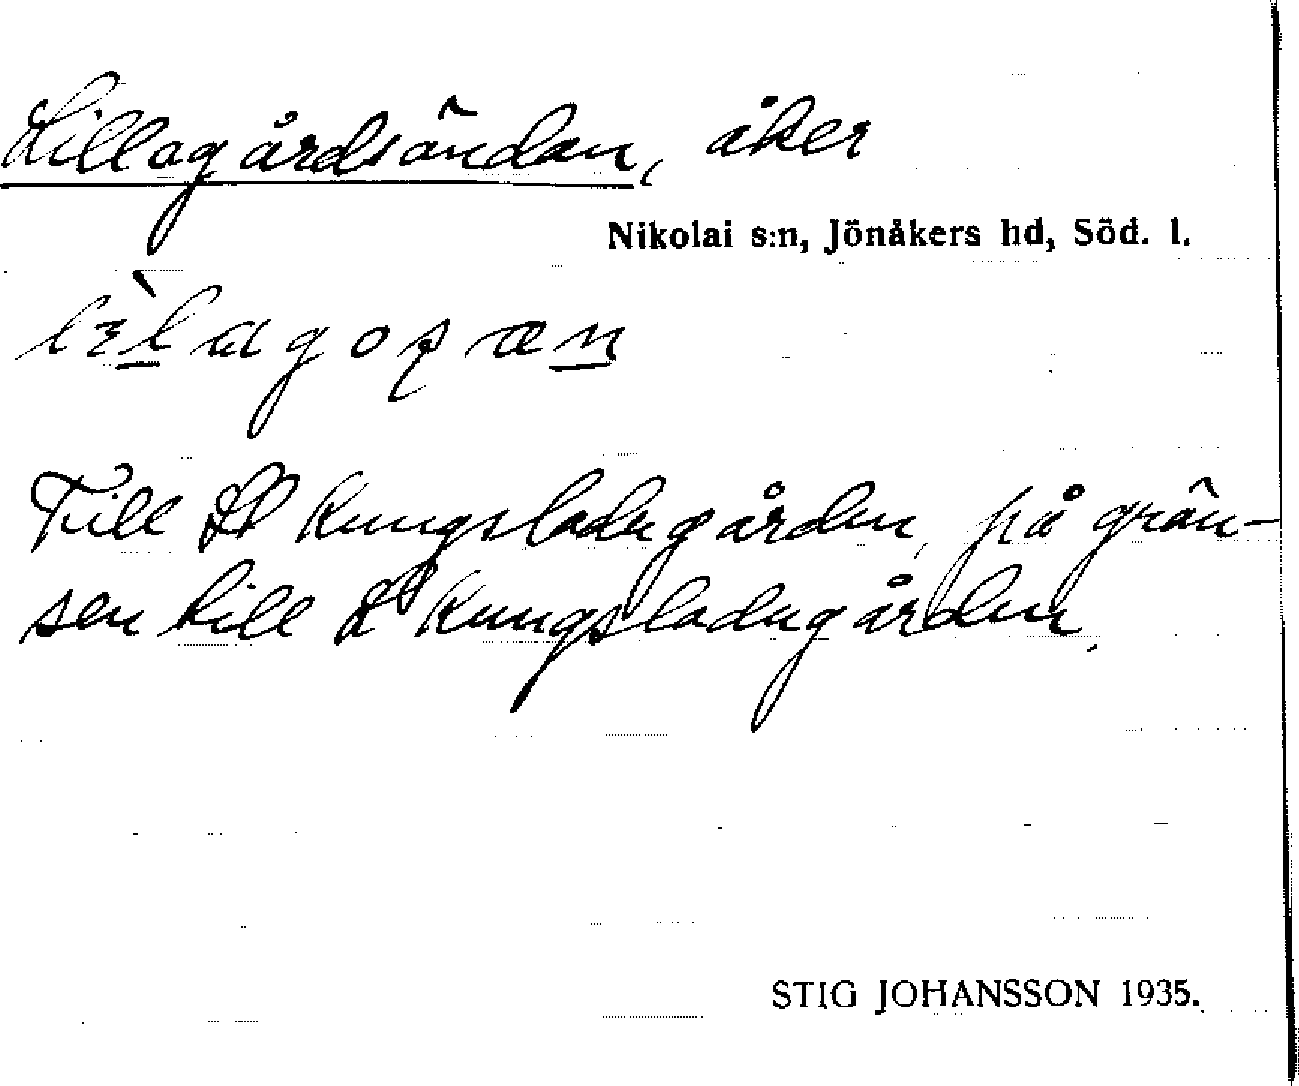 Lillagårdsändan, åker
Nikolai s:n, Jönåkers hd, Söd. l.
Till St Kungsladugården, på grän-
sen till L Kungsladugården.
STIG JOHANSSON 1935.